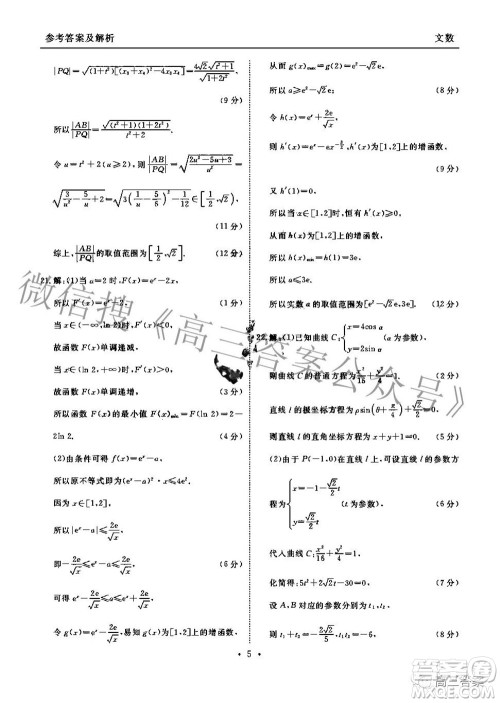 参考答案及解析
文数
|PQ|=√((1+t²)[(x₃+x₄)²-4x₃x₄])=4√2√(t²+1)/√(1+2t²).
(9 分)
所以|AB|/|PQ|=√((t²+1)(1+2t²))/(t²+2).
令 u=t²+2(u≥2), |AB|/|PQ|=√((2u²-5u+3)/u²)=
√(3/u²-5/u+2)=√(3(1/u-5/6)²-1/12)∈[1/2,√2).
(11 分)
综上,|AB|/|PQ|的取值范围为[1/2,√2). (12 分)
21.解:(1)当 a=2 时,F(x)=eˣ-2x,
所以 F′(x)=eˣ-2.
当 x∈(-∞,ln 2)时,F′(x)<0.
故函数 F(x)单调递减,
当 x∈(ln 2,+∞)时,F′(x)>0.
故函数 F(x)单调增,
所以函数 F(x)的最小值 F(x)min=F(ln 2)=2-
2ln 2. (4 分)
(2)由条件可得 f(x)=eˣ-a,
所以原不等式即为|eˣ-a|²·x≤4e².
因为 x∈[1,2],
所以|eˣ-a|≤2e/√x,
即-2e/√x≤eˣ-a≤2e/√x. (6 分)
可得 eˣ-2e/√x≤a≤eˣ+2e/√x.
令 g(x)=eˣ-2e/√x,易知 g(x)为[1,2]上的增函数,
从而 g(x)max=g(2)=e²-√2e,
所以 a≥e²-√2e. (8 分)
令 h(x)=eˣ+2e/√x,
则 h′(x)=eˣ-ex^(-3/2)为[1,2]上的增函数.
(9 分)
又因为 h′(1)=0,
所以当 x∈[1,2]时,h′(x)≥0,
从而 h(x)为[1,2]上的增函数,
所以 h(x)min=h(1)=3e.
从而 a≤3e.
所以实数 a 的取值范围为[e²-√2e,3e]. (12 分)
22.解:(1)已知曲线 C:{x=4cosα y=2sinα (α为参数),
则曲线 C 的普通方程为x²/16+y²/4=1. (2 分)
直线 l 的极坐标方程为 ρsin(θ+π/4)=-√2/2,
则直线 l 的直角坐标方程为 x+y+1=0. (5 分)
(2)由于 P(-1,0)在直线 l 上,可设直线 l 的参数方
程为{x=-1-√2/2t y=√2/2t (t 为参数),
代入曲线 C:x²/16+y²/4=1, (7 分)
化简得:5t²+2√2t-30=0.
设 A、B 对应的参数分别为 t₁,t₂,
则 t₁+t₂=-2√2/5,t₁t₂=-6, (9 分)
· 5 ·
微信搜《高三答案公众号》
高三答案